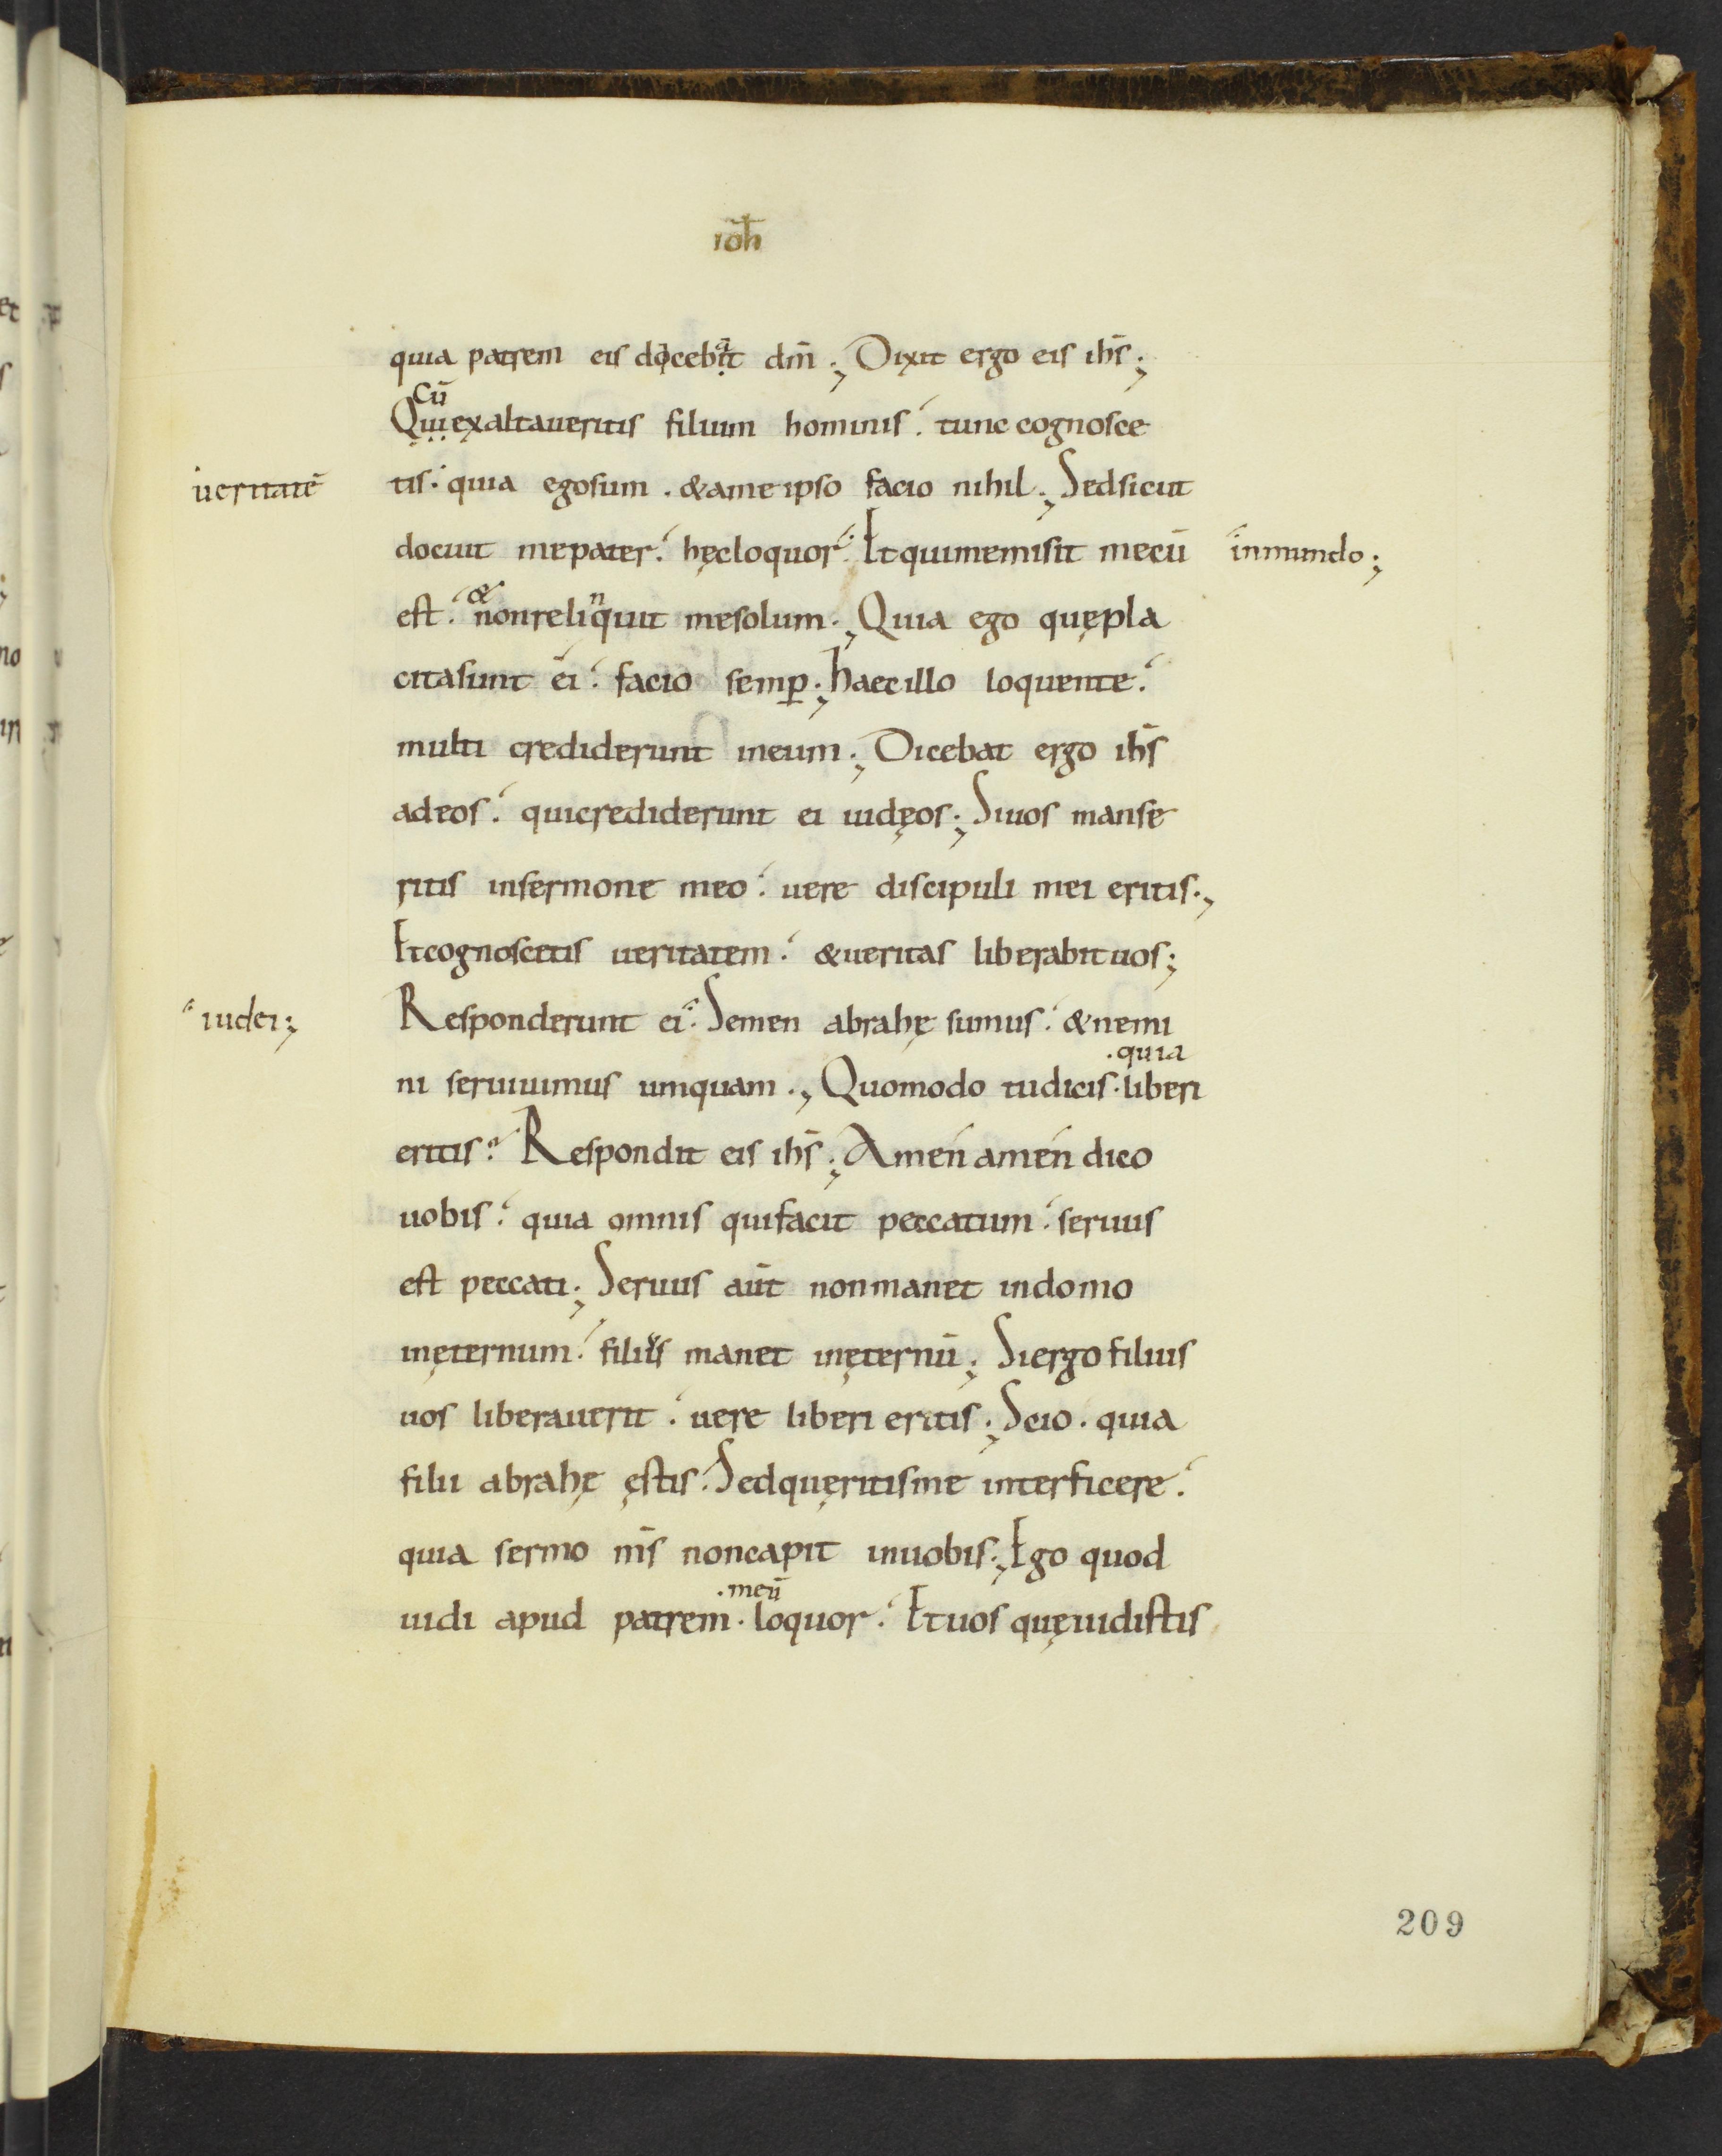 ioh̄
quia patrem eis docebit a dm̄; Dixit ergo eis ihs̄;
Cū
Qui exaltaueritis filium hominis. tunc cognosce
ueritatē tis. quia ego sum. & a me ipso facio nihil; Sed sicut
docuit me pater. hęc loquor. Et qui me misit mecū in mundo;
&
n
est. non reliquit me solum; Quia ego quę pla
cita sunt ei. facio semꝑ; haec illo loquente.
multi crediderunt in eum; Dicebat ergo ihs̄
ad eos. qui crediderunt ei iudęos; Si uos manse
ritis in sermone meo. uere discipuli mei eritis;
Et cognoscetis ueritatem. & ueritas liberabit uos;
iudei; Responderunt ei. Semen abrahę sumus. & nemi
.quia
ni seruiuimus umquam; Quomodo tu dicis. liberi
eritis? Respondit eis ihs̄; Amén amén dico
uobis. quia omnis qui facit peccatum. seruus
est peccati; Seruus aūt non manet in domo
in ęternum. filius manet in ęternū; Si ergo filius
uos liberauerit. uere liberi eritis; Scio. quia
filii abrahę ęstis. Sed quęritis me interficere.
quia sermo ms̄ non capit in uobis; Ego quod
.meū
uidi apud patrem. loquor. Et uos quę uidistis
209